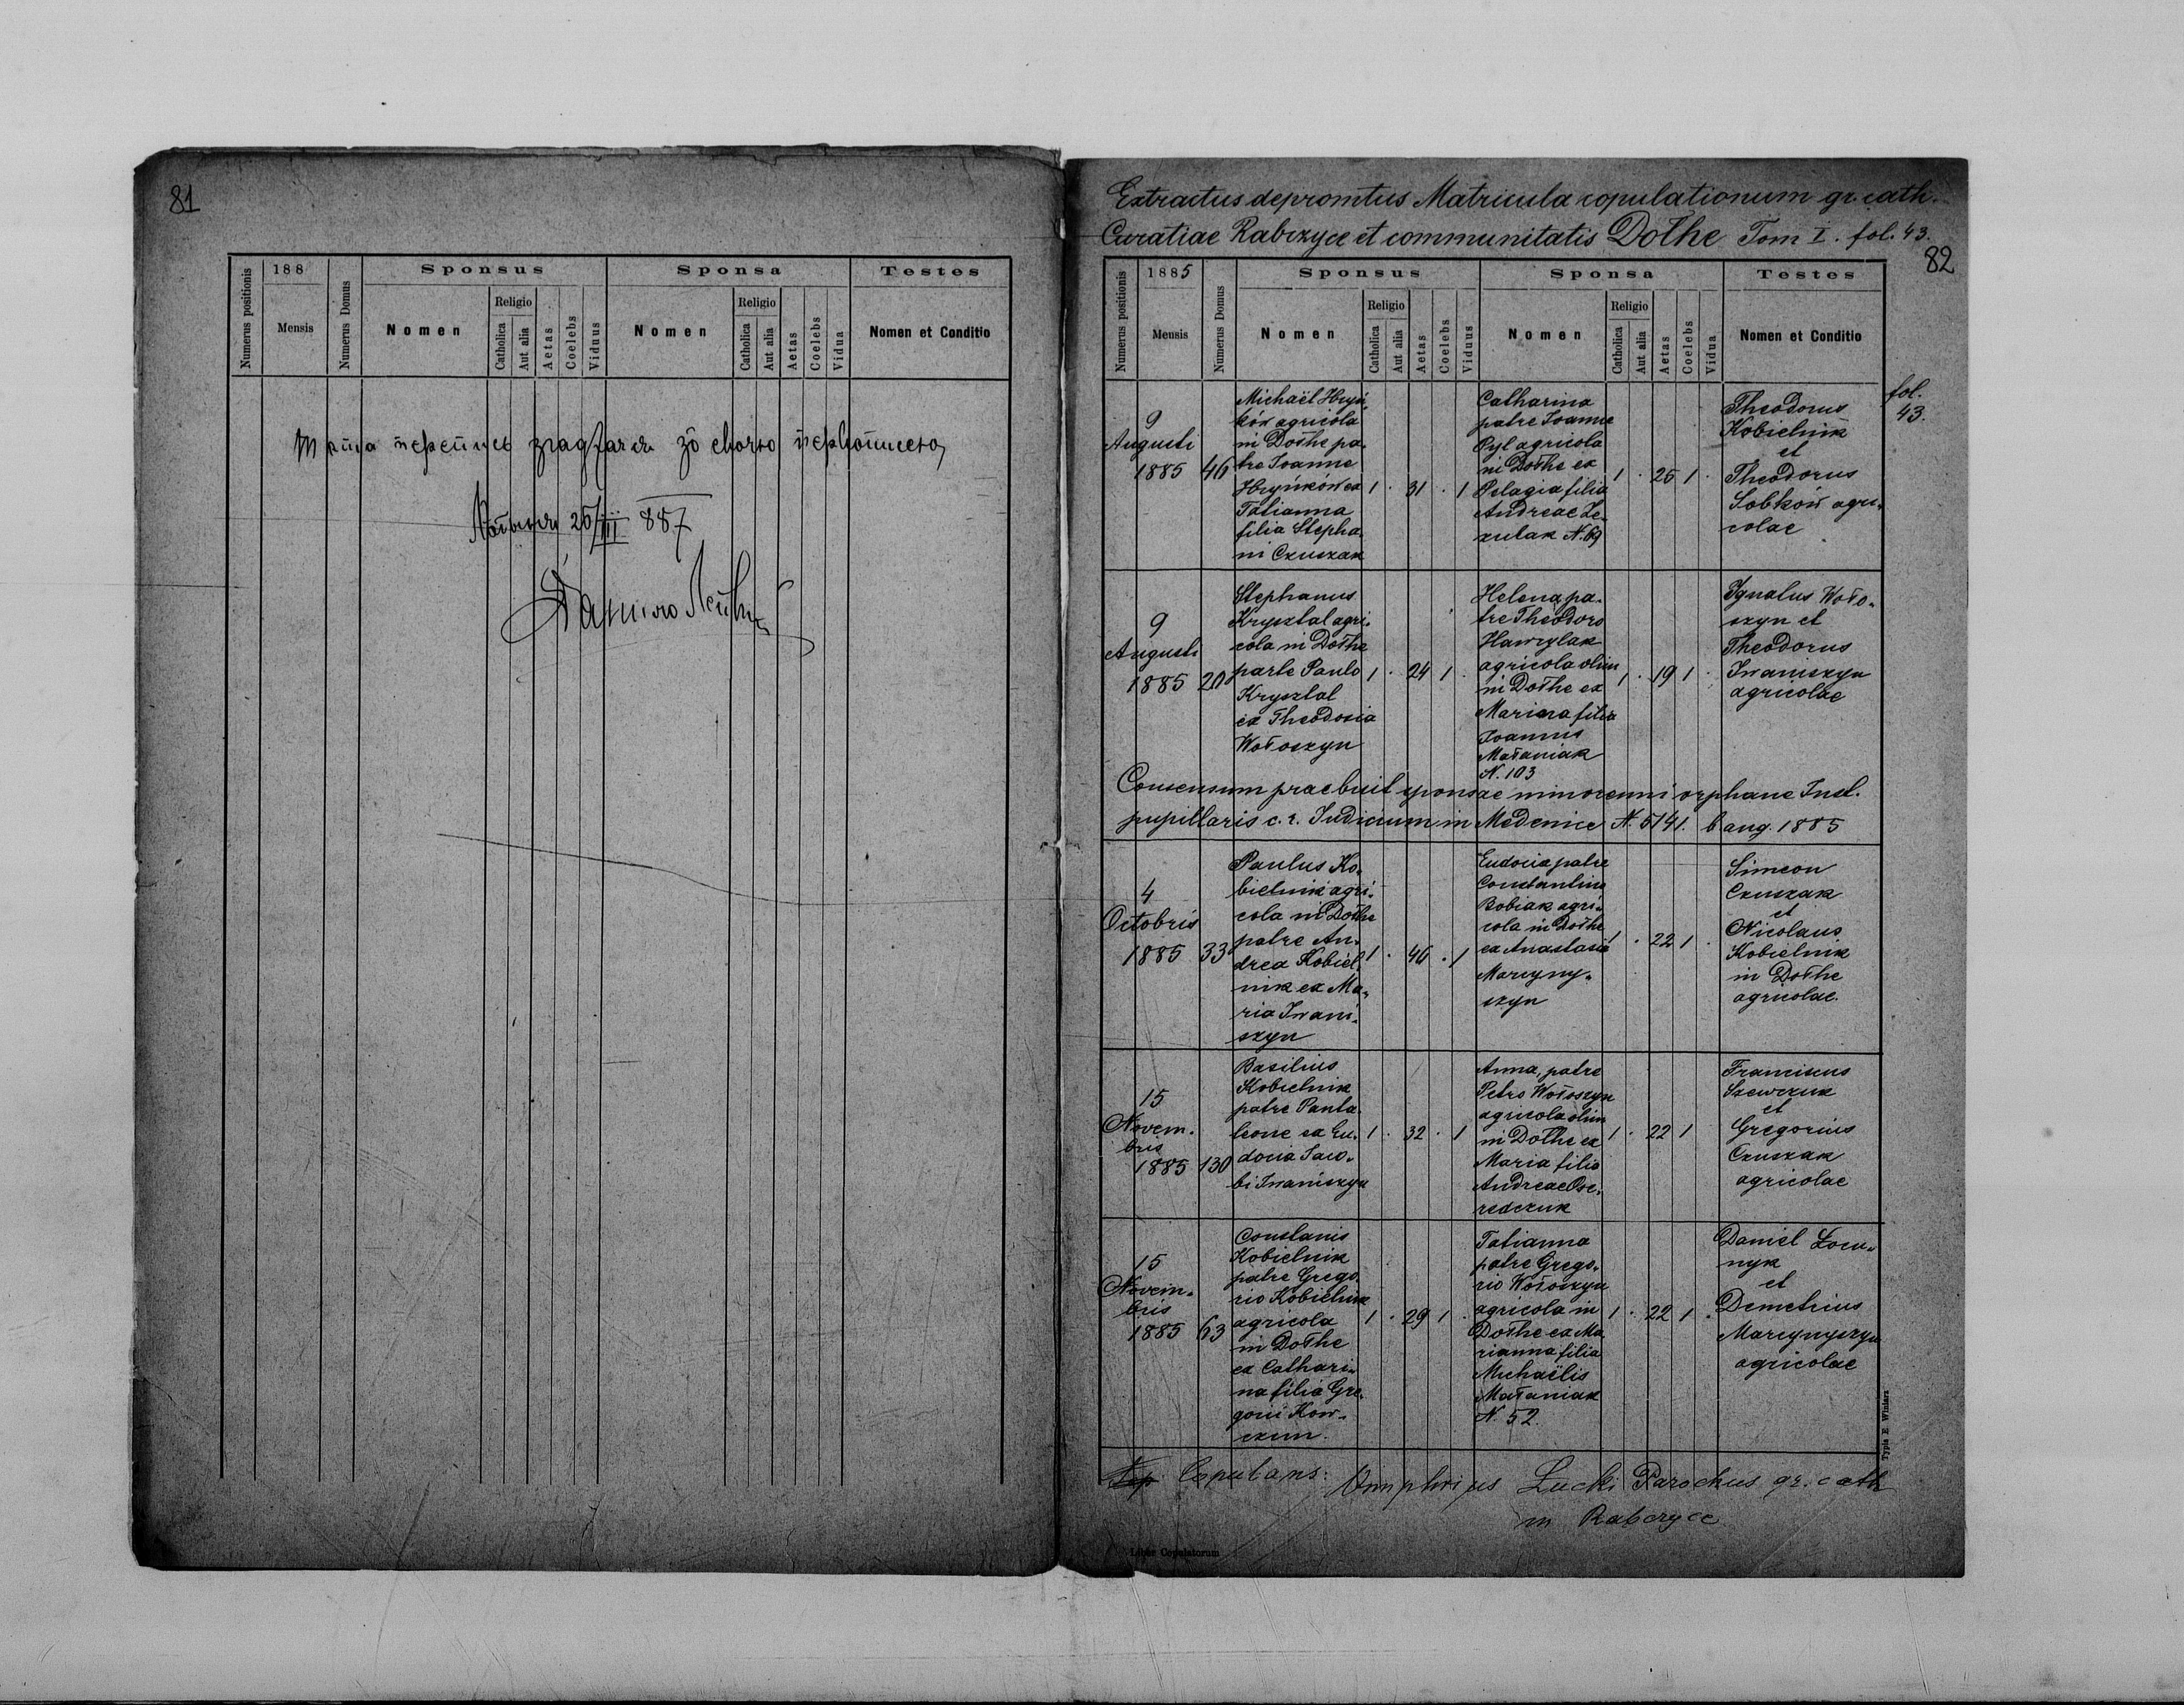 81
188
Numerus positionis
Mensis
Numerus Domus
Sponsus
Nomen
Religio
Catholica
Aut alia
Aetas
Coelebs
Viduus
Sponsa
Nomen
Religio
Catholica
Aut alia
Aetas
Coelebs
Vidua
Testes
Nomen et Conditio
зо свою
25/III 887
Данило
Extractus depromtus Matricula copulationum gr. cath.
Curatiae Rabczyce et communitatis Dołhe Tom I. fol. 43.
82
Numerus positionis
1885
Mensis
Numerus Domus
Sponsus
Nomen
Religio
Catholica
Aut alia
Aetas
Coelebs
Viduus
Sponsa
Nomen
Religio
Catholica
Aut alia
Aetas
Coelebs
Vidua
Testes
Nomen et Conditio
fol.
43.
9
Augusti
1885
46
Michaël Hryń
ków agricola
in Dołhe pa-
tre Ioanne
Hryńków ex
Tatianna
filia Stepha-
ni Czuszak
1 . 31 . 1
Catharina
patre Ioanne
Pyl agricola
in Dołhe ex
Pelagia filia
Andreae Le-
zulak N. 69
1 . 25 1 .
Theodorus
Kobielnik
et
Theodorus
Sobków agri-
colae
9
Augusti
1885
20
Stephanus
Krysztal agri-
cola in Dołhe
parte Paulo
Krysztal
ex Theodosia
Wołoszyn
1 . 24 1 .
Helena pa-
tre Theodoro
Hawrylak
agricola olim
in Dołhe ex
Marinna filia
Ioannis
Małaniak
N. 103
1 . 19 1 .
Ignatus Woło-
szyn et
Theodorus
Iwaniszyn
agricolae
Consensum praebuit sponsae minorenni orphanae Inst.
pupillaris c. r. Iudicium in Medenice N. 5141. 6 aug. 1885
4
Octobris
1885
33
Paulus Ko-
bielnik agri-
cola in Dołhe
patre An-
drea Kobiel-
nik ex Ma-
ria Iwani-
szyn
1 . 46 . 1
Eudocia patre
Constantino
Bobiak agri-
cola in Dołhe
ex Anastasia
Marcyny-
szyn
1 . 22 1 .
Simeon
Czuszak
et
Nicolaus
Kobielnik
in Dołhe
agricolae.
15
Novem-
bris
1885
130
Basilius
Kobielnik
patre Panta-
leone ex Eu-
docia Iaco-
bi Iwaniszyn
1 . 32 . 1
Anna, patre
Petro Wołoszyn
agricola olim
in Dołhe ex
Maria filia
Andreae Ose-
redczuk
1 . 22 1
Franciscus
Szewczuk
et
Gregorius
Czuszak
agricolae
15
Novem-
bris
1885
63
Constanis
Kobielnik
patre Grego-
rio Kobielnik
agricola
in Dołhe
ex Cathari-
na filia Gre-
gorii Kow-
czun.
1 . 29 1 .
Tatianna
patre Grego-
rio Wołoszyn
agricola in
Dołhe ex Ma-
rianna filia
Michaëlis
Małaniak
N. 52.
1 . 22 1 .
Daniel Łocu-
nyk
et
Demetrius
Marcynyszyn
agricolae
Copulans: Onuphrijus Lucki Parochus gr. cath
in Rabczyce
Typis E Winiarz
Liber Copulatorum